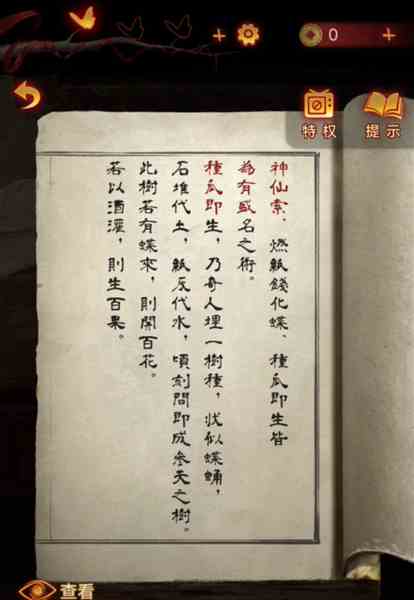 0
特权
提示
神仙索、燃紙錢化蝶、種瓜即生皆
為有或名之術。
種瓜即生，乃奇人埋一樹種，狀似蝶蛹，
石堆代土，紙灰代水，頃刻間即成參天之樹。
此樹若有蝶來，則開百花。
若以酒灌，則生百果。
查看